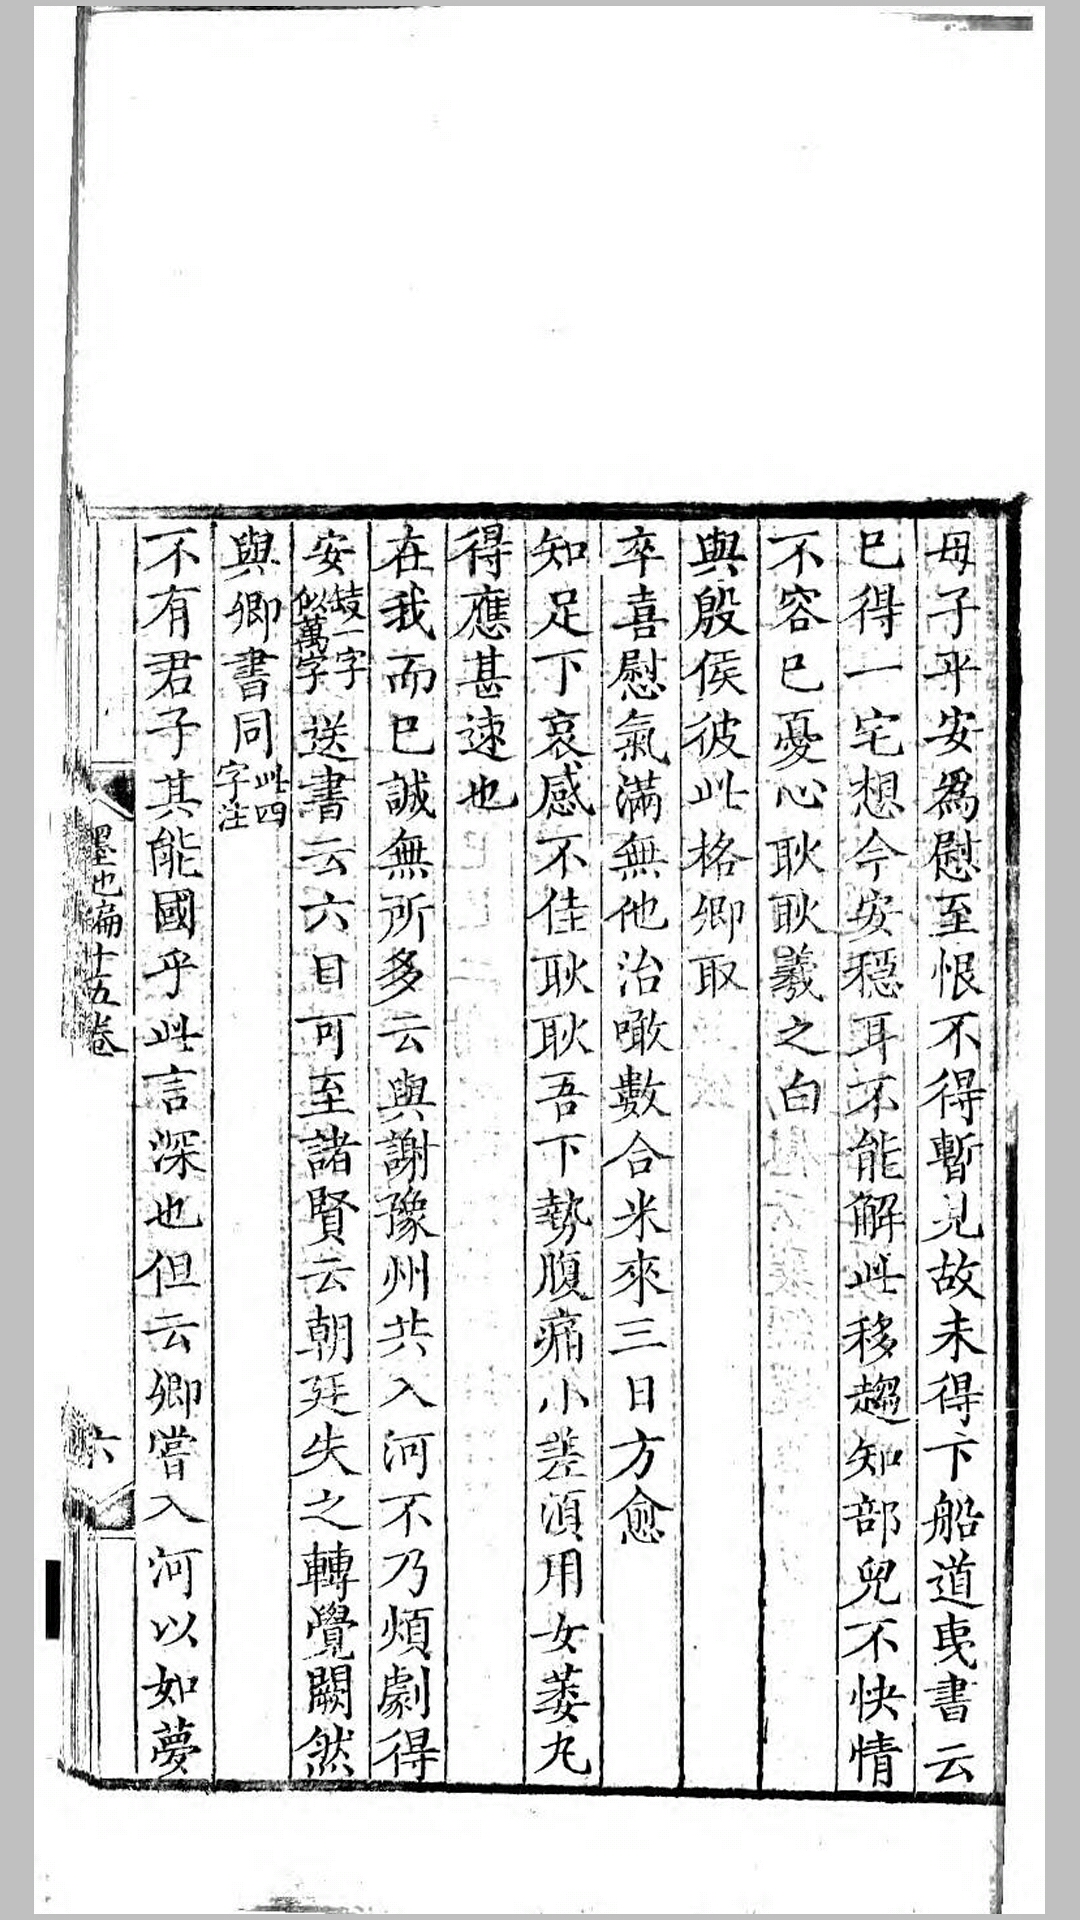 母子平安為慰至恨不得暫見故未得卞船道夷書云
已得一宅想今安穩耳不能解此移趨知部兒不快情
不容已憂心耿耿羲之白
與殷侯彼此格卿取
卒喜慰氣滿無他治噉數合米來三日方愈
知足下哀感不佳耿耿吾下勢腹痛小差須用女萎丸
得應甚速也
在我而已誠無所多云與謝豫州共入河不乃煩劇得
安 蚑一字似萬字 送書云六日可至諸賢云朝廷失之轉覺闕然
與卿書同 此四字注
不有君子其能國乎此言深也但云卿嘗入河以如夢
墨池編十五卷
六